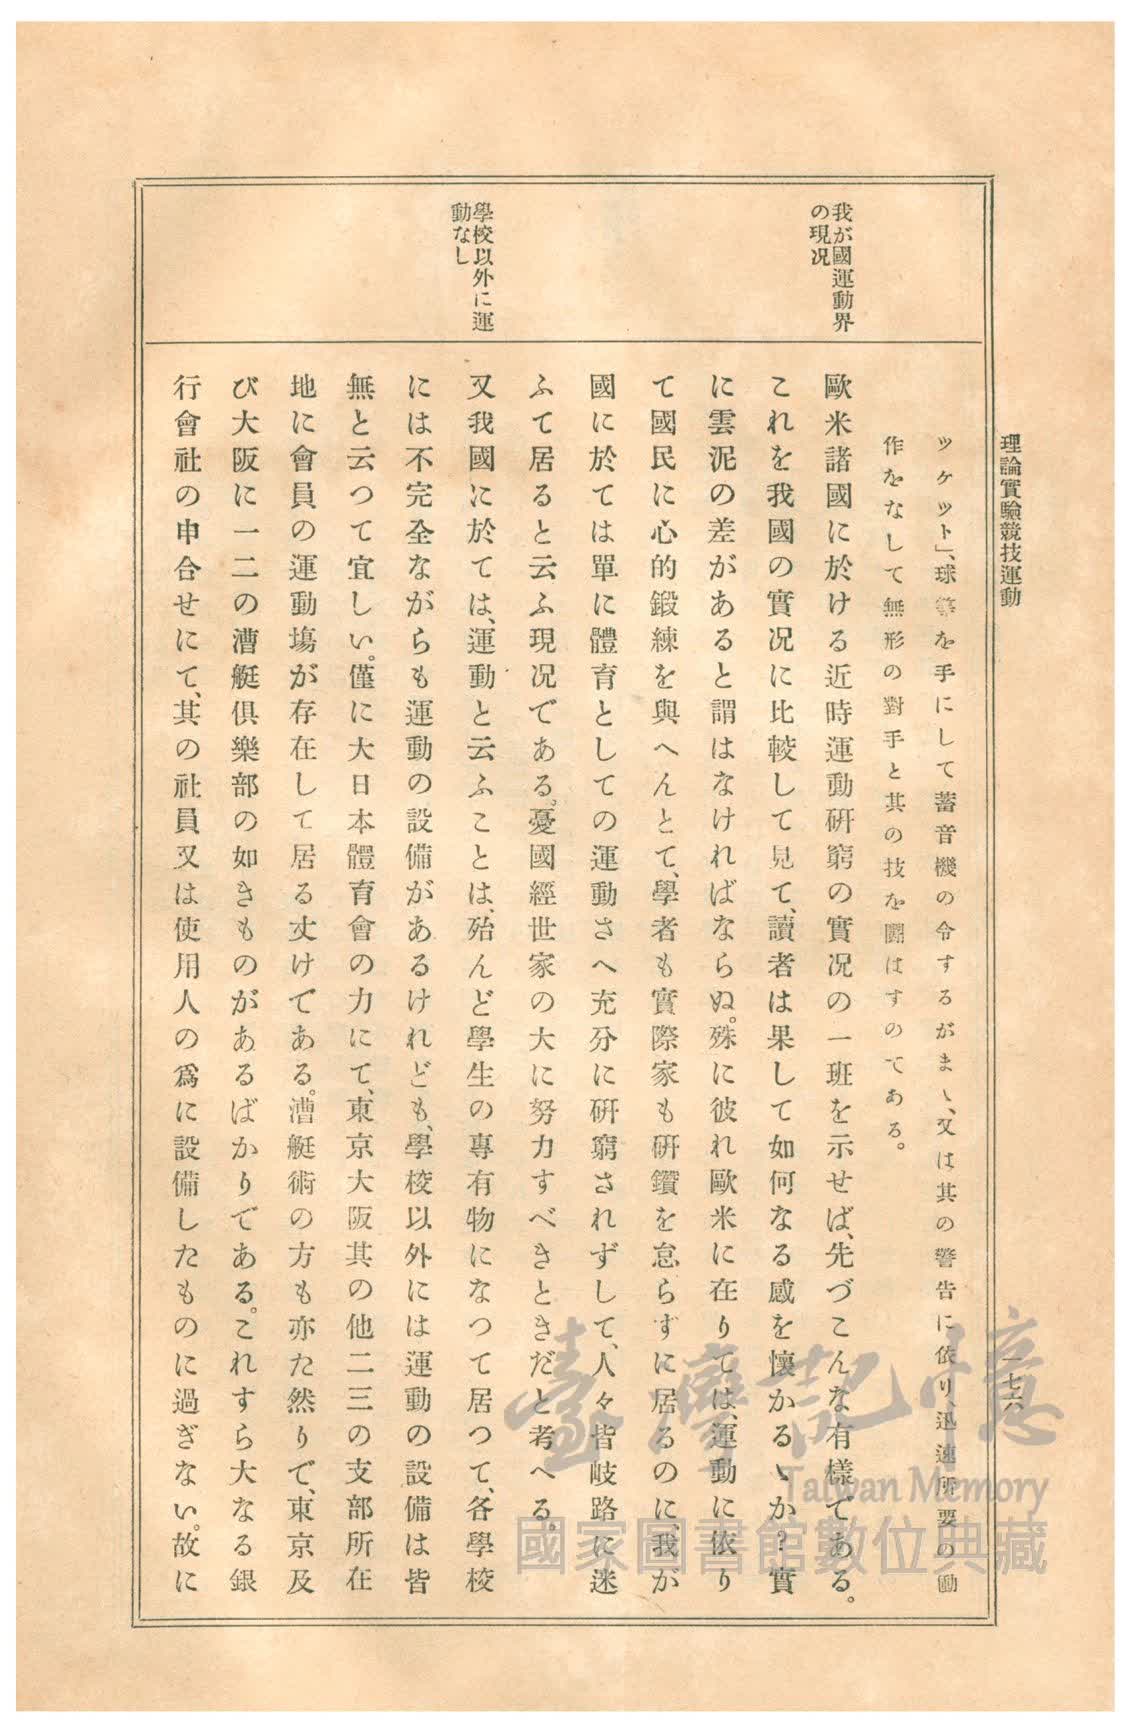 理論實驗競技運動
一七六
ツケット」、球等を手にして蓄音機の令するがまゝ、又は其の警告に依り、迅速所要の働
作をなして無形の對手と其の技を鬪はすのである。
我が國運動界
の現况
歐米諸國に於ける近時運動硏窮の實况の一班を示せば、先づこんな有樣である。
これを我國の實况に比較して見て、讀者は果して如何なる感を懷かるゝか?實
に雲泥の差があると謂はなければならぬ。殊に彼れ歐米に在りては、運動に依り
て國民に心的鍛練を與へんとて、學者も實際家も硏鑽を怠らずに居るのに、我が
國に於ては單に體育としての運動さへ充分に硏窮されずして、人々皆岐路に迷
ふて居ると云ふ現况である。憂國經世家の大に努力すべきときだと考へる。
學校以外に運
動なし
又我國に於ては、運動と云ふことは、殆んど學生の專有物になつて居つて、各學校
には不完全ながらも運動の設備があるけれども、學校以外には運動の設備は皆
無と云つて宜しい。僅に大日本體育會の力にて、東京大阪其の他二三の支部所在
地に會員の運動塲が存在して居る丈けである。漕艇術の方も亦た然りで、東京及
び大阪に一二の漕艇俱樂部の如きものがあるばかりである。これすら大なる銀
行會社の申合せにて、其の社員又は使用人の爲に設備したものに過ぎない。故に
臺灣記憶
Taiwan Memory
國家圖書館數位典藏